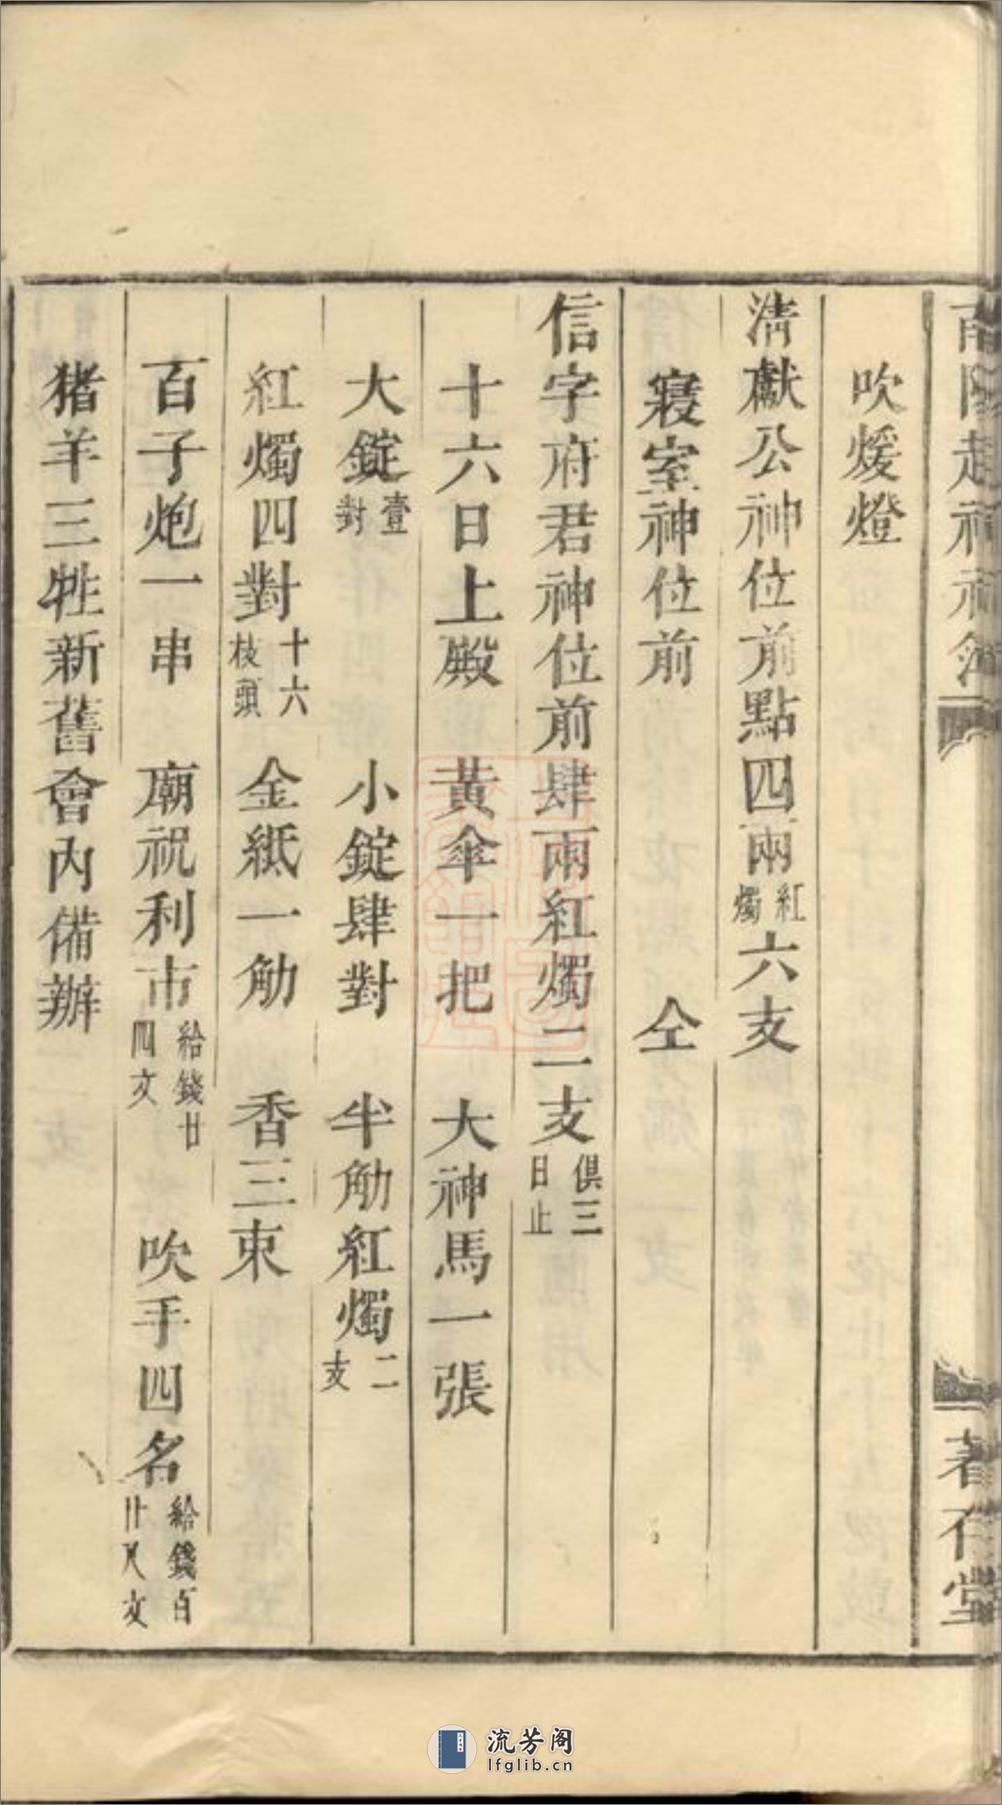 吹煖燈
清獻公神位前點四兩紅燭六支
寢室神位前 仝
信字府君神位前肆兩紅燭二支俱三日止
十六日上殿 黃傘一把 大神馬一張
大錠壹對 小錠肆對 半觔紅燭二支
紅燭四對十六枝頭 金紙一觔 香三束
百子炮一串 廟祝利市給錢廿四文 吹手四名給錢百廿文
猪羊三牲新舊會內備辦
著存堂
流芳阁
lfglib.cn